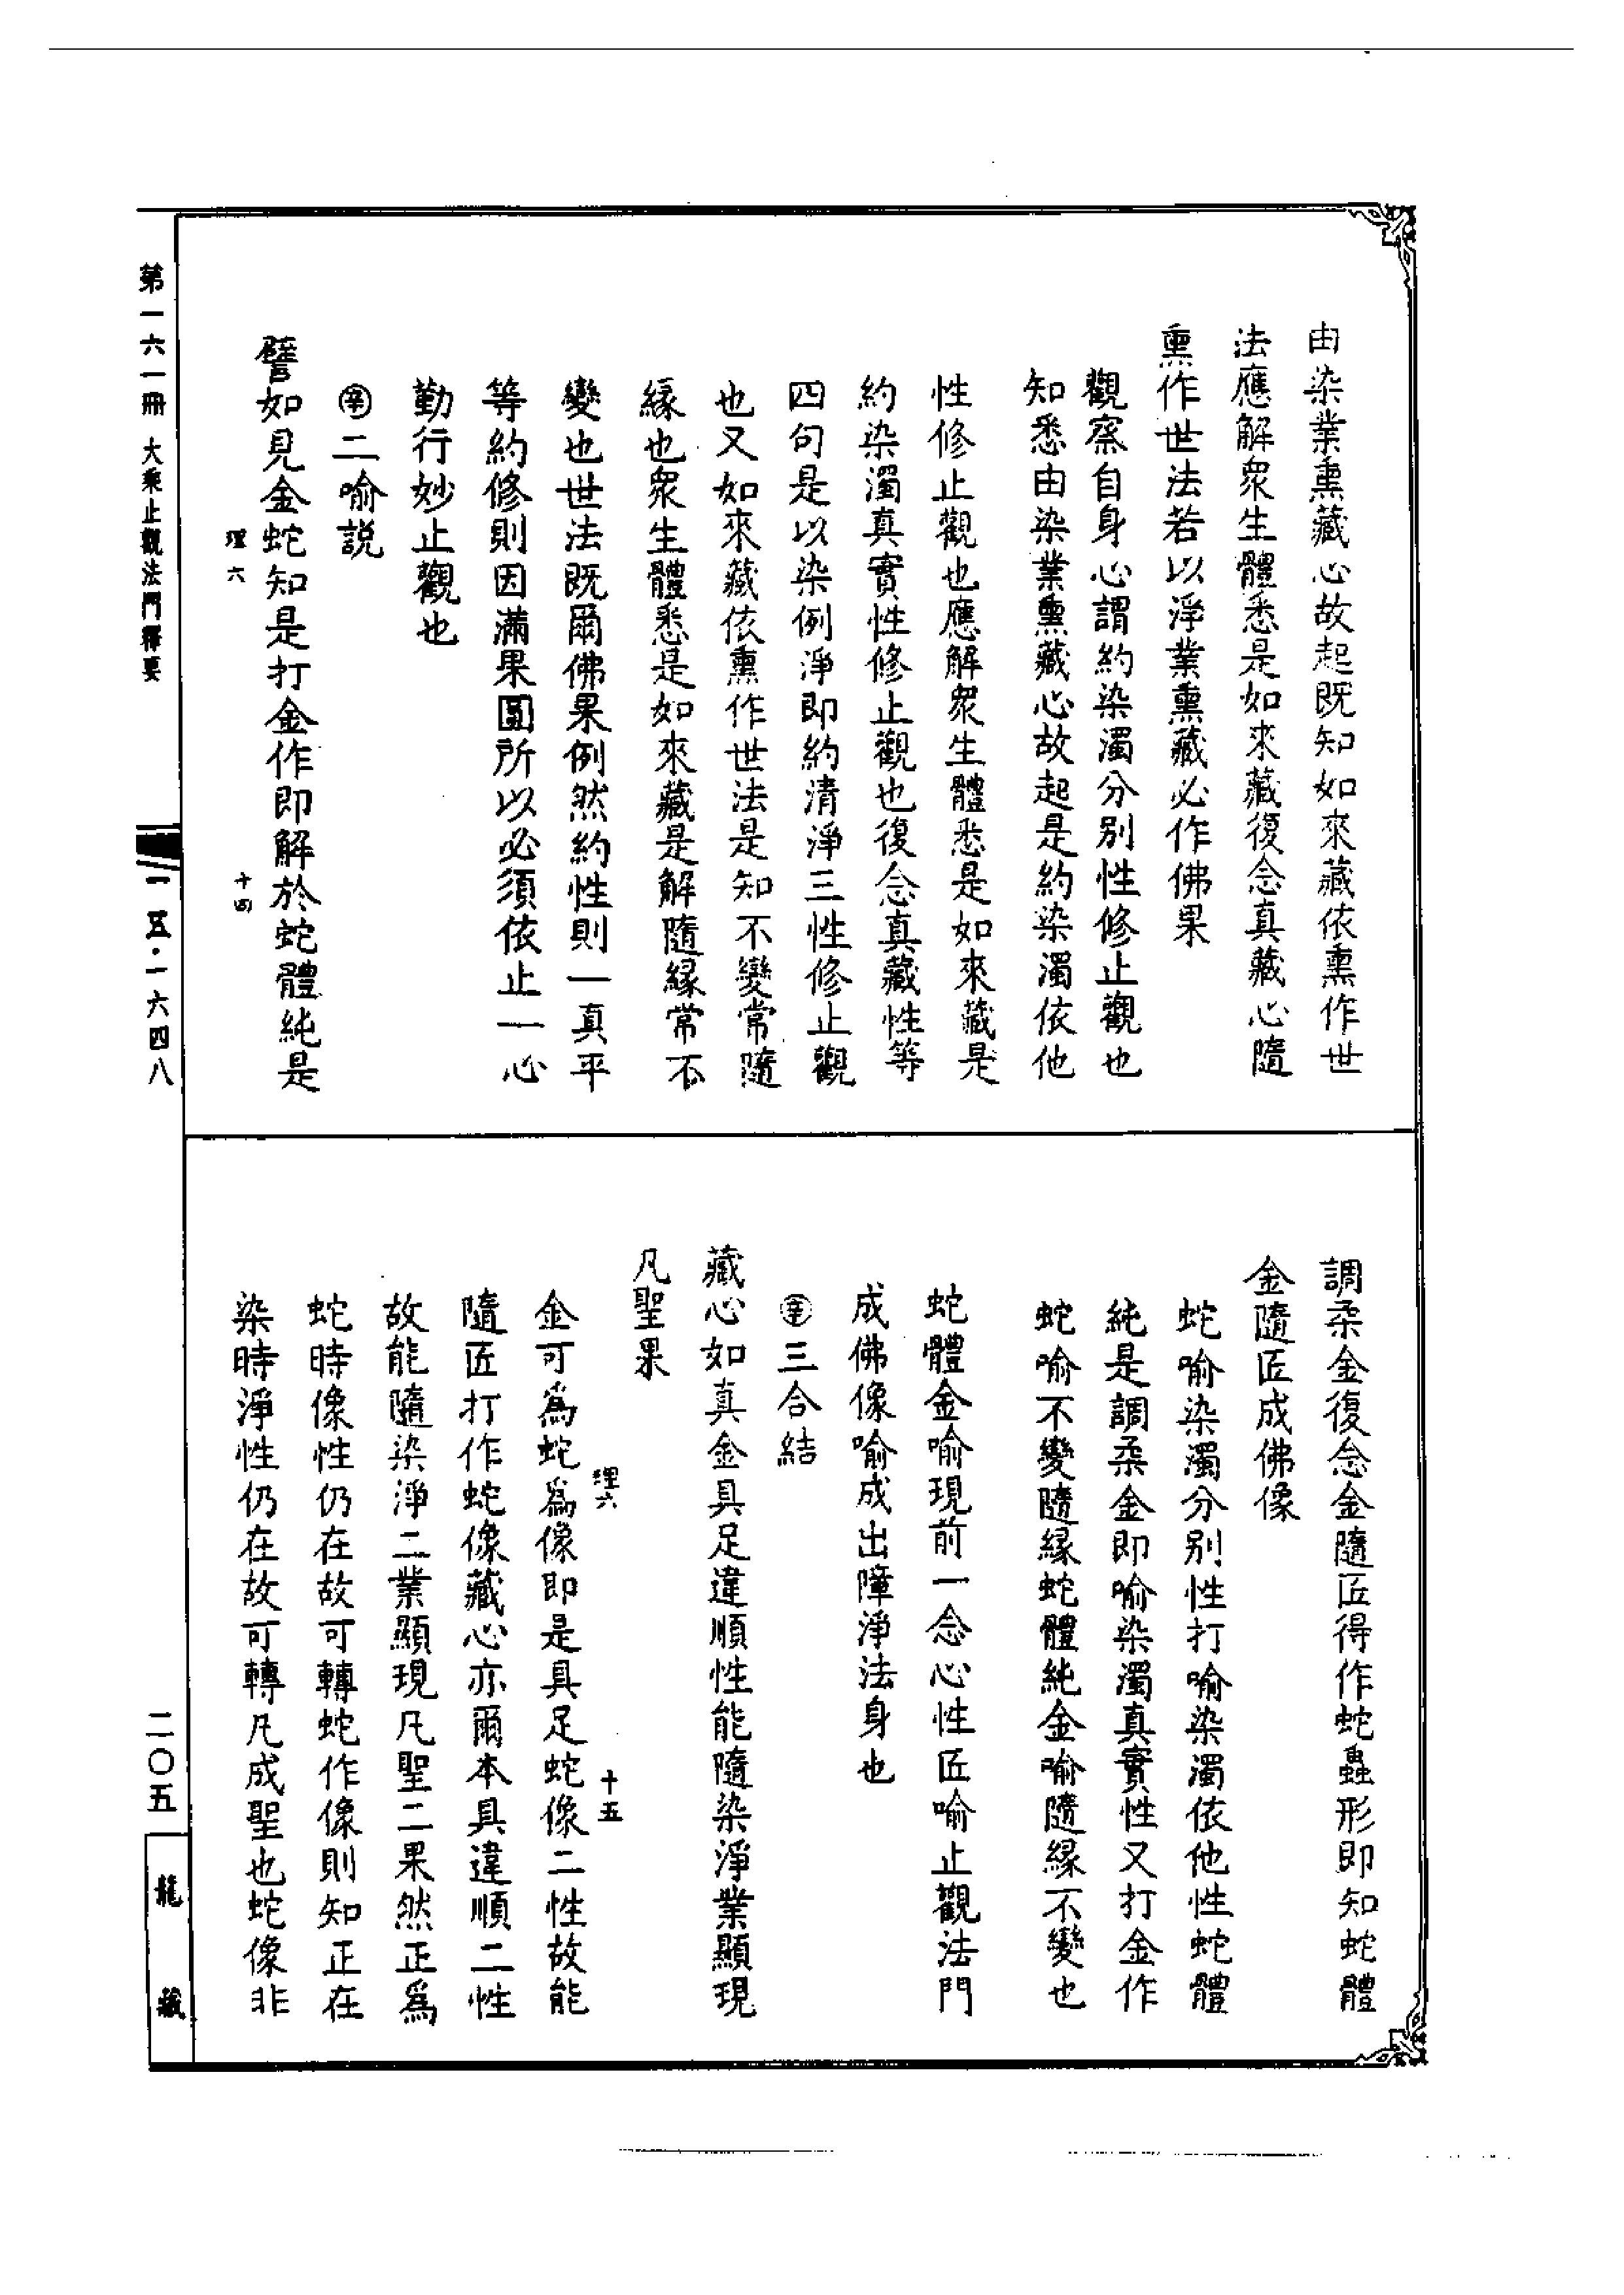 由染業熏藏心故起既知如來藏依熏作世
法應解衆生體悉是如來藏復念真藏心隨
熏作世法若以淨業熏藏必作佛果
觀察自身心謂約染濁分別性修止觀也
知悉由染業熏藏心故起是約染濁依他
性修止觀也應解衆生體悉是如來藏是
約染濁真實性修止觀也復念真藏性等
四句是以染例淨即約清淨三性修止觀
也又如來藏依熏作世法是知不變常隨
緣也衆生體悉是如來藏是解隨緣常不
變也世法既爾佛果例然約性則一真平
等約修則因滿果圓所以必須依止一心
勤行妙止觀也
㊛二喻説
譬如見金蛇知是打金作即解於蛇體純是
理六 十四
調柔金復念金隨匠得作蛇蟲形即知蛇體
金隨匠成佛像
蛇喻染濁分別性打喻染濁依他性蛇體
純是調柔金即喻染濁真實性又打金作
蛇喻不變隨緣蛇體純金喻隨緣不變也
蛇體金喻現前一念心性匠喻止觀法門
成佛像喻成出障淨法身也
辛三合結
藏心如真金具足違順性能隨染淨業顯現
凡聖果
理六 十五
金可爲蛇爲像即是具足蛇像二性故能
隨匠打作蛇像藏心亦爾本具違順二性
故能隨染淨二業顯現凡聖二果然正爲
蛇時像性仍在故可轉蛇作像則知正在
染時淨性仍在故可轉凡成聖也蛇像非
第一六一冊 大乘止觀法門釋要
一五·一六四八
二〇五
龍藏